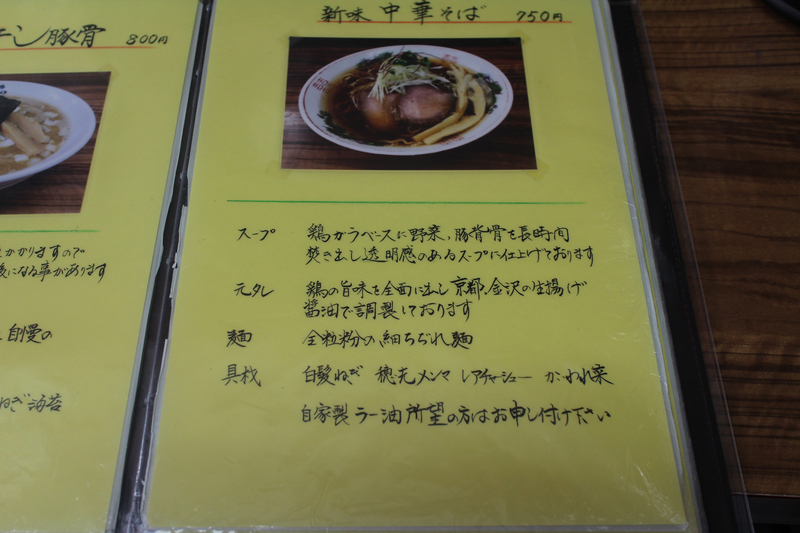 ン豚骨 800円
かかりますので
になる事があります
自慢の
ねぎ 海苔
新味 中華そば 750円
スープ 鶏ガラベースに野菜、豚背骨を長時間
焚き出し透明感のあるスープに仕上げております
元タレ 鶏の旨味を全面に出し京都、金沢の生揚げ
醤油で調製しております
麺 全粒粉の、細ちぢれ麺
具材 白髪ねぎ 穂先メンマ レアチャーシュー かいわれ菜
自家製ラー油所望の方はお申し付け下さい